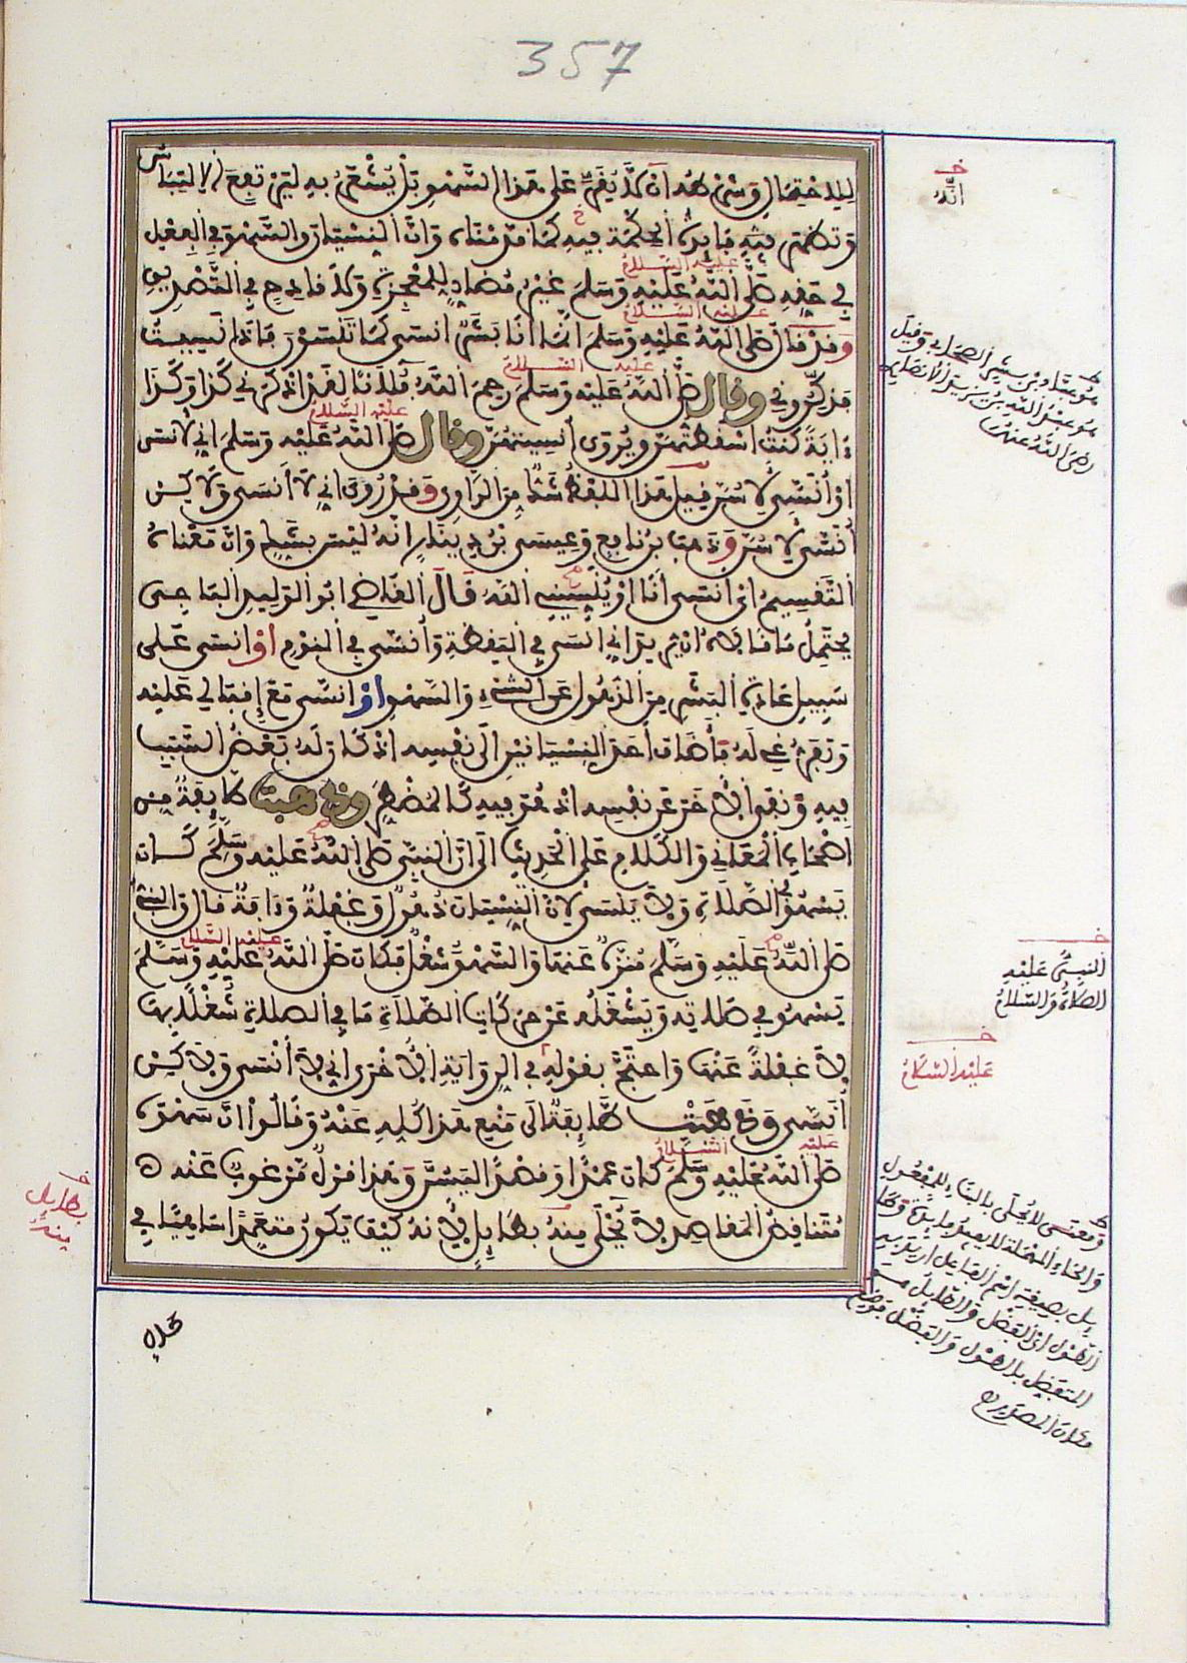 357
ليلا خيفال وشرطه انه لا يقر على هذا السهو بل يشعر به ليرتفع الالتباس
وتظهر فيه فائدة الحكمة فيه كما قدمناه وان النسيان والسهو في الفعل
في حقه صلى الله عليه وسلم غير مضاد للمعجزة ولا قادح في التصديق
وقد قال صلى الله عليه وسلم انما انا بشر انسى كما تنسون فاذا نسيت
فذكروني وقال صلى الله عليه وسلم رحم الله فلانا لقد اذكرني كذا وكذا
ءاية كنت اسقطتهن ويروى أنسيتهن وقال صلى الله عليه وسلم اني لأنسى
او أنسى لأسن قيل هذا اللفظ شك من الراوي وقد روى اني لا أنسى ولاكن
أنسى لأسن وذهب ابن نافع وعيسى بن دينار انه ليس بشك وان معناه
التقسيم اي انسى أنا او ينسيني الله قال القاضي ابو الوليد الباجي
يحتمل ما قالاه ان يريد اني انسى في اليقظة وأنسى في النوم أو انسى على
سبيل عادة البشر من الذهول عن الشيء والسهو أو أنسى مع إقبالي عليه
وتفرغي له فأضاف أحد النسيانين الى نفسه اذ كان له بعض السبب
فيه ونفى الأخر عن نفسه اذ هو فيه كالمضطر وذهبت طائفة من
اصحاب المعاني والكلام على الحديث الى ان النبي صلى الله عليه وسلم كان
يسهو في الصلاة ولا ينسى لان النسيان ذهول وغفلة وءافة قال والنبي
صلى الله عليه وسلم منزه عنها والسهو شغل فكان صلى الله عليه وسلم
يسهو في صلاته ويشغله عن حركات الصلاة ما في الصلاة شغلا بها
لا غفلة عنها واحتج بقوله في الرواية الأخرى اني لا أنسى ولاكن
أنسى وذهبت طائفة الى منع هذا كله عنه وقالوا ان سهوه
صلى الله عليه وسلم كان عمدا وقصدا ليسن وهذا قول مرغوب عنه
متناقض المقاصد لا يحلى منه بطايل لأنه كيف يكون متعمدا ساهيا في
حال
خ
انه
هو عباد بن بشير الصحابي وقيل
هو عبد الله بن يزيد الانصاري
رضي الله عنهما
خ
النبي عليه
الصلاة والسلام
خ
عليه السلام
ط
ومعنى لا يحلى بالبناء للمفعول
والحاء المهملة لا يعير فايدة
الطول اي الفضل والطايل
المتفضل بالطول والفضل
خ
بطايل
منه
عليه السلام
عليه السلام
عليه السلام
عليه السلام
عليه السلام
عليه السلام